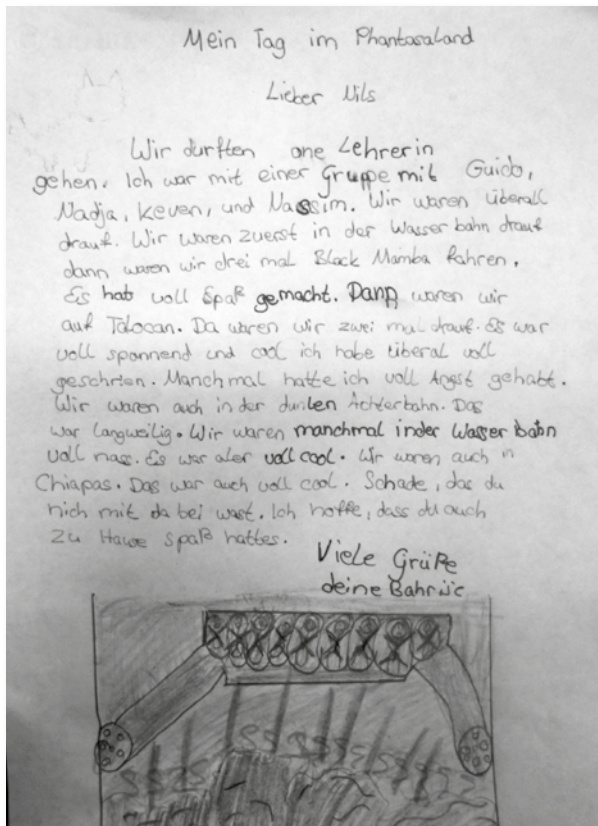 Mein Tag im Phantasaland
Lieber Nils
Wir durften one Lehrerin
gehen. Ich war mit einer Gruppe mit Guido,
Nadja, Keven, und Nassim. Wir waren überall
drauf. Wir waren zuerst in der Wasser bahn drauf
dann waren wir drei mal Black Mamba fahren.
Es hat voll Spaß gemacht. Dann waren wir
auf Talocan. Da waren wir zwei mal drauf. Es war
voll spannend und cool ich habe überal voll
geschrien. Manchmal hatte ich voll Angst gehabt.
Wir waren auch in der dunlen Achterbahn. Das
war langweilig. Wir waren manchmal inder Wasser bahn
voll nass. Es war aber voll cool. Wir waren auch in
Chiapas. Das war auch voll cool. Schade, das du
nich mit da bei wast. Ich hoffe, dass du auch
zu Hause Spaß hattes.
Viele Grüße
deine